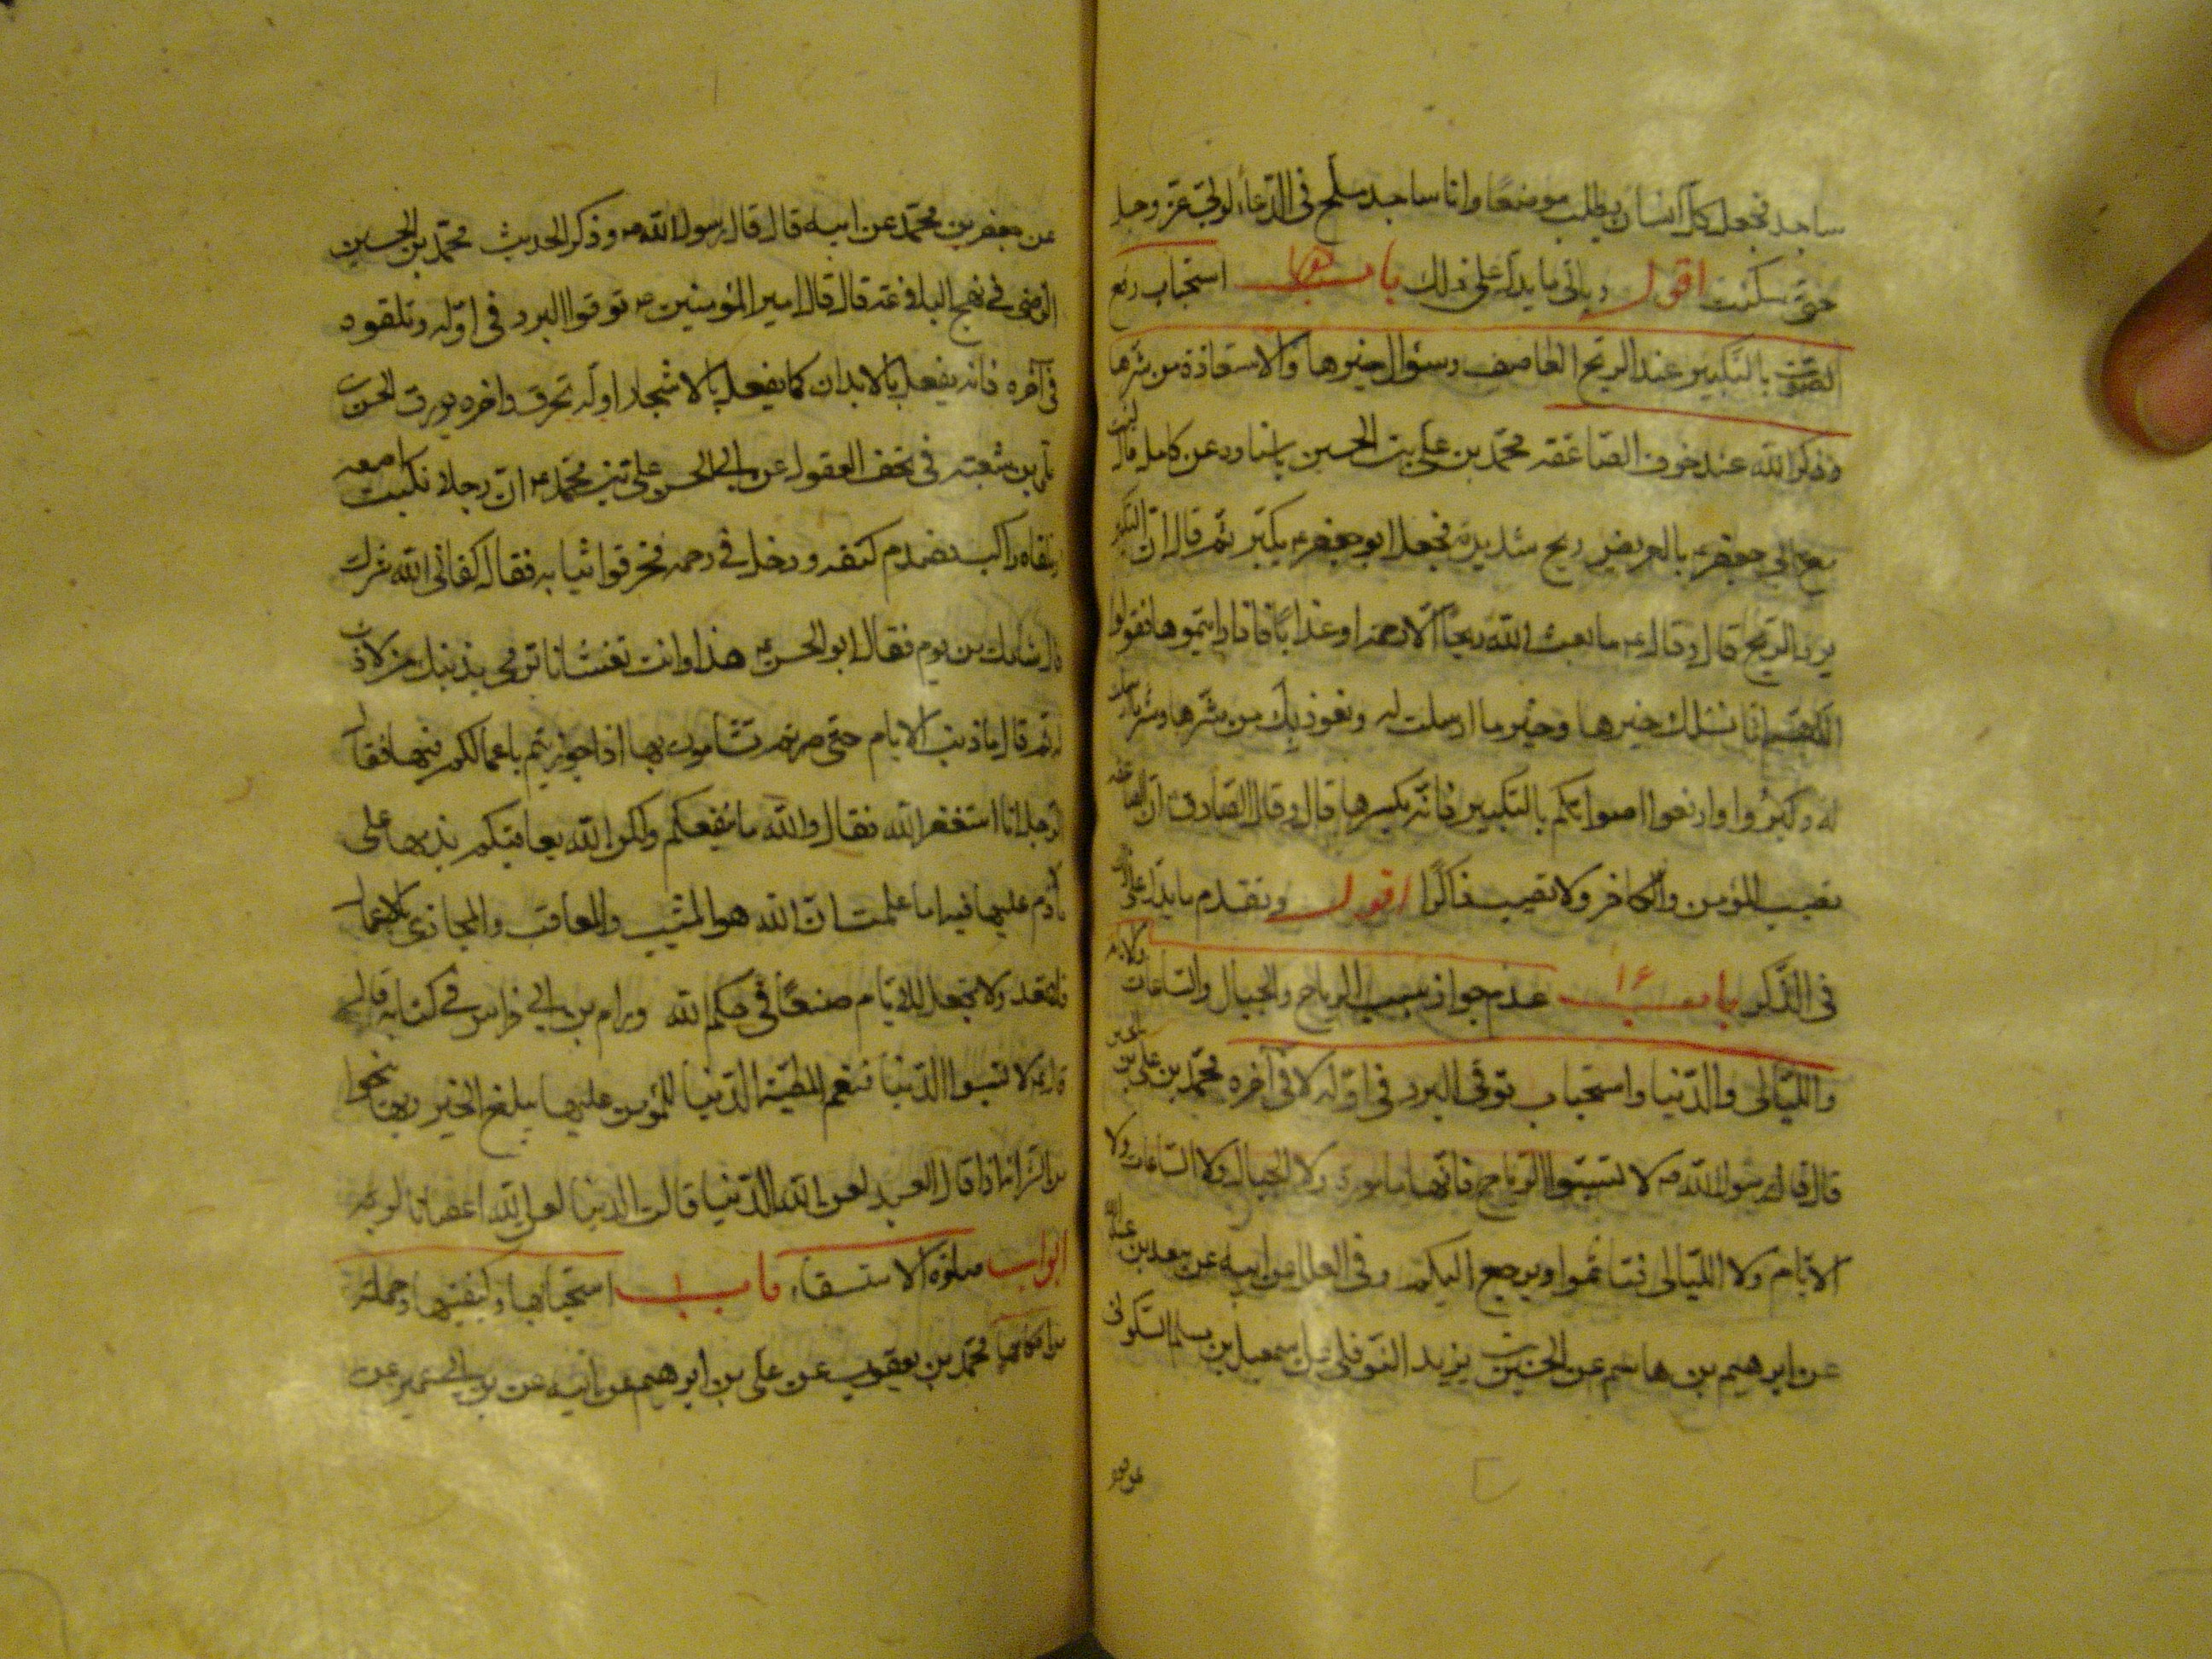 ساجد فجعل كل انسان يطلب موضعا وانا ساجد ملح في الدعاء لربي عز وجل
حتى سكنت اقول وياتي ما يدل على ذلك باب استحباب رفع
الصوت بالتكبير عند الريح العاصف وسؤال خيرها والاستعاذة من شرها
وذكر الله عند خوف الصاعقة محمد بن علي بن الحسين باسناده عن كامل قال كنت
مع ابي جعفر ع بالعريض ريح شديدة فجعل ابو جعفر ع يكبر ثم قال ان التكبير
يرد الريح قال وقال ع ما بعث الله ريحا الا رحمة او عذابا فاذا رايتموها فقولوا
اللهم انا نسئلك خيرها وخير ما ارسلت له ونعوذ بك من شرها وشر ما ارسلت
له وكبروا وارفعوا اصواتكم بالتكبير فانه يكسرها قال وقال الصادق ع ان الصاعقة
تصيب المؤمن والكافر ولا تصيب ذاكرا اقول وتقدم ما يدل على
في الذكر باب ١٦ عدم جواز سب الرياح والجبال والساعات ولا الايام
والليالي والدنيا واستحباب توقي البرد في اوله لا في آخره محمد بن علي بن الحسين
قال قال رسول الله ص لا تسبوا الرياح فانها مامورة ولا الجبال ولا الساعات ولا
الايام ولا الليالي فتاثموا ويرجع اليكم وفي العلل عن ابيه عن سعد بن عبد الله
عن ابرهيم بن هاشم عن الحسين بن يزيد النوفلي عن اسمعيل بن مسلم السكوني
عن جعفر بن محمد عن ابيه قال قال رسول الله ص وذكر الحديث محمد بن الحسين
الرضي في نهج البلاغة قال قال امير المؤمنين ع توقوا البرد في اوله وتلقوه
في آخره فانه يفعل بالابدان كما يفعل بالاشجار اوله تحرق واخره يورق الحسن
بن شعبة في تحف العقول عن ابي الحسن علي بن محمد ع ان رجلا نكبت اصبعه
وتلقاه راكب فصدم كتفه ودخل في زحمة فخرقوا ثيابه فقال كفاني الله شرك
من يوم فقال ابو الحسن ع هذا وانت تغشانا ترمي بذنبك من لا ذنب
له ثم قال ما ذنب الايام حتى صرتم تشامون بها اذا جوزيتم باعمالكم فيها فقال
الرجل انا استغفر الله فقال والله ما ينفعكم ولكن الله يعاقبكم بذمها على
ما لا ذم عليها فيه اما علمت ان الله هو المثيب والمعاقب والمجازي بالاعمال
فلا تعد ولا تجعل للايام صنعا في حكم الله ورام بن ابي فراس في كتابه قال
قال ع لا تسبوا الدنيا فنعم المطية الدنيا للمؤمن عليها يبلغ الخير وبها ينجو
من الشر انه اذا قال العبد لعن الله الدنيا قالت الدنيا لعن الله اعصانا لربه
ابواب صلوة الاستسقاء باب ١ استحبابها وكيفيتها وجملة
من احكامها محمد بن يعقوب عن علي بن ابرهيم عن ابيه عن بن ابي عمير عن